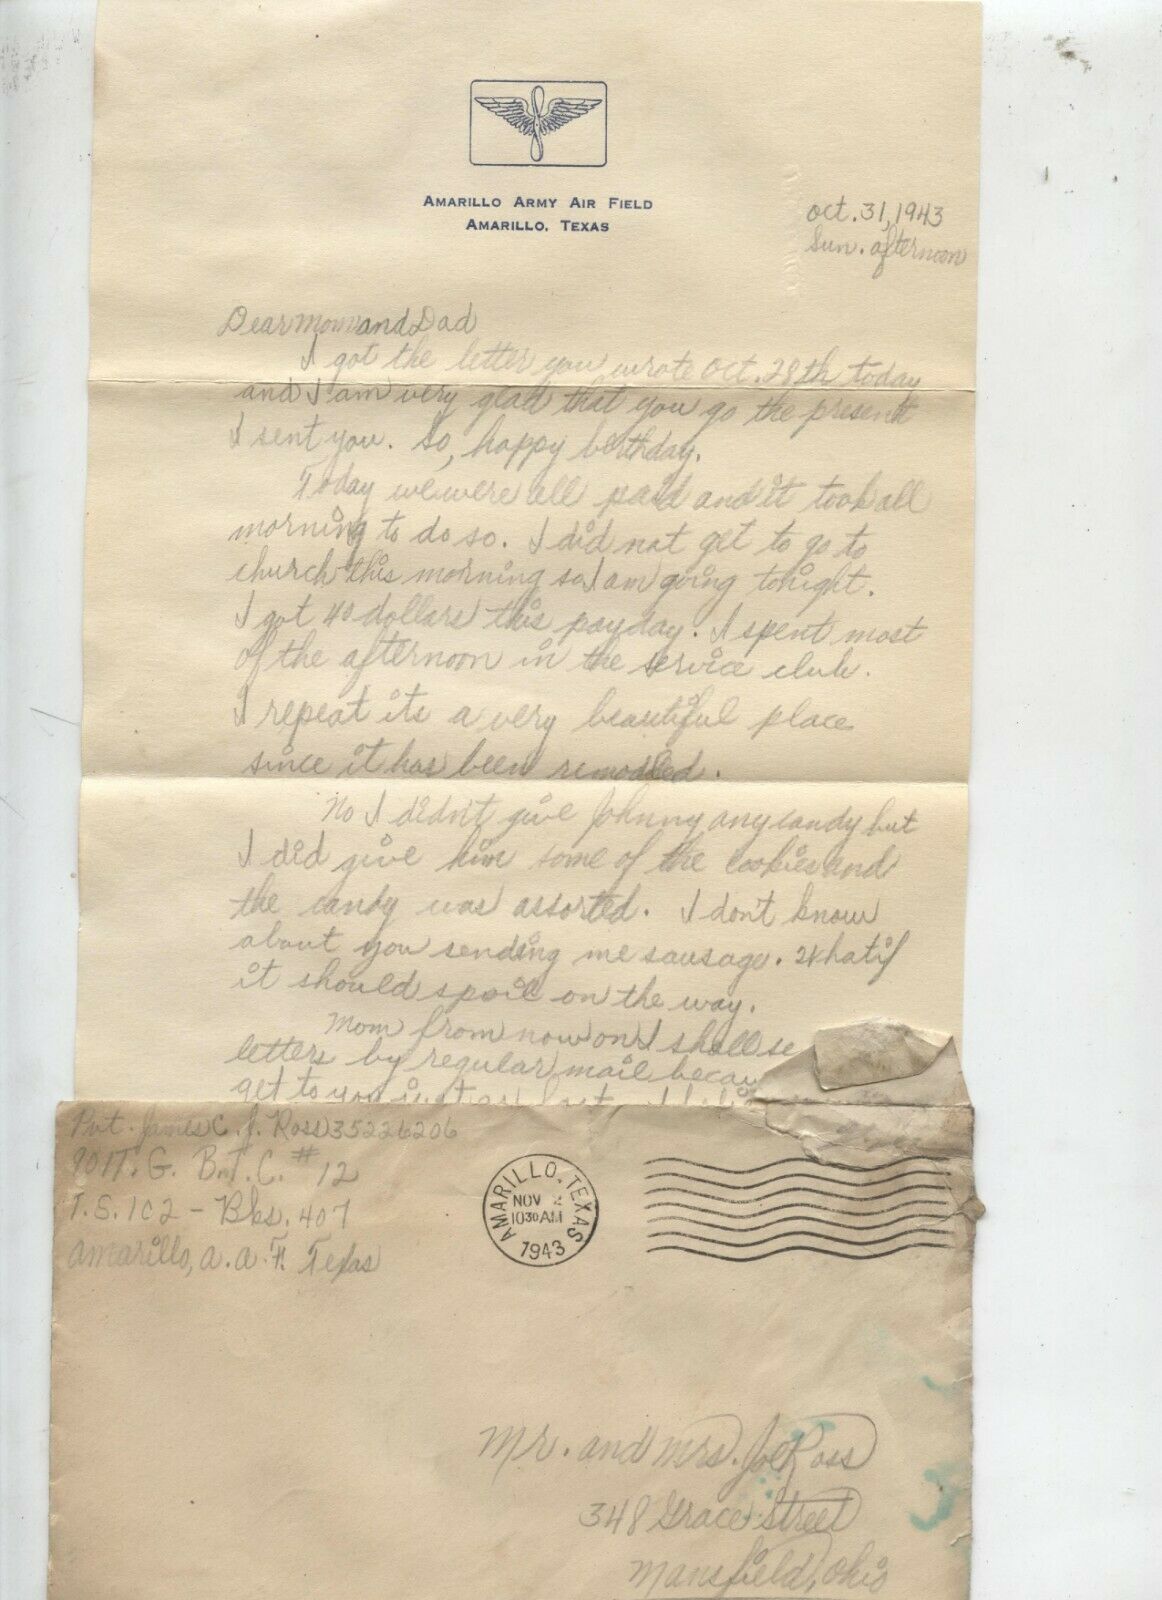 AMARILLO ARMY AIR FIELD
AMARILLO, TEXAS
Oct. 31, 1943
Sun. afternoon
Dear Mom and Dad
I got the letter you wrote Oct. 28th today
and I am very glad that you go the present
I sent you. So, happy birthday.
Today we were all paid and it took all
morning to do so. I did not get to go to
church this morning so I am going tonight.
I got 40 dollars this payday. I spent most
of the afternoon in the service club.
I repeat its a very beautiful place
since it has been remodled.
No I didn't give Johnny any candy but
I did give him some of the cookies and
the candy was assorted. I don't know
about you sending me sausage. What if
it should spoil on the way.
Mom from now on I shall se
letters by regular mail becau
get to you just as fast. I
Pvt. James C. J. Ross 35226206
901 T. G. B.T.C. # 12
T.S. 102 - Bks. 407
Amarillo, A. A. F. Texas
AMARILLO, TEXAS
NOV 2
10 30 AM
1943
Mr. and Mrs. Joe Ross
348 Grace Street
Mansfield, Ohio